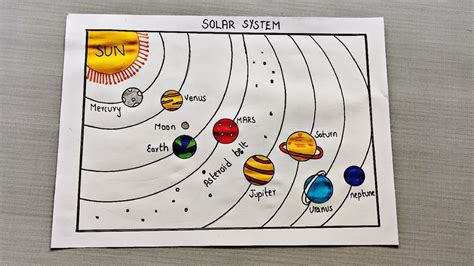 SOLAR SYSTEM
SUN
Mercury
Venus
Moon
Earth
MARS
Asteroid belt
Jupiter
Saturn
Uranus
neptune